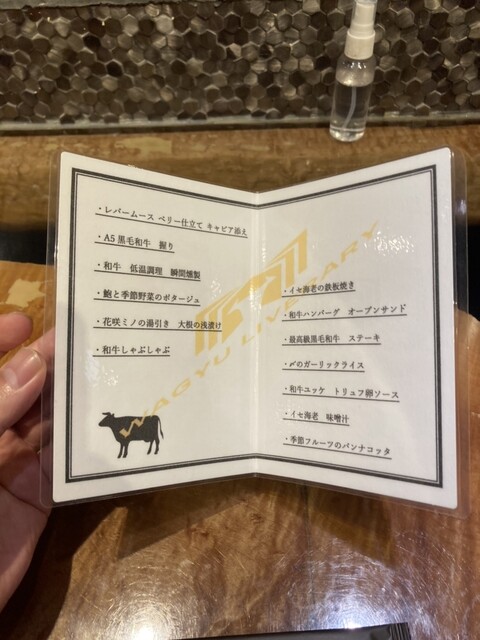 ・レバームース ベリー仕立て キャビア添え
・A5黒毛和牛 握り
・和牛 低温調理 瞬間燻製
・鮑と季節野菜のポタージュ
・花咲ミノの湯引き 大根の浅漬け
・和牛しゃぶしゃぶ
・イセ海老の鉄板焼き
・和牛ハンバーグ オープンサンド
・最高級黒毛和牛 ステーキ
・〆のガーリックライス
・和牛ユッケ トリュフ卵ソース
・イセ海老 味噌汁
・季節フルーツのパンナコッタ
WAGYU LIVE